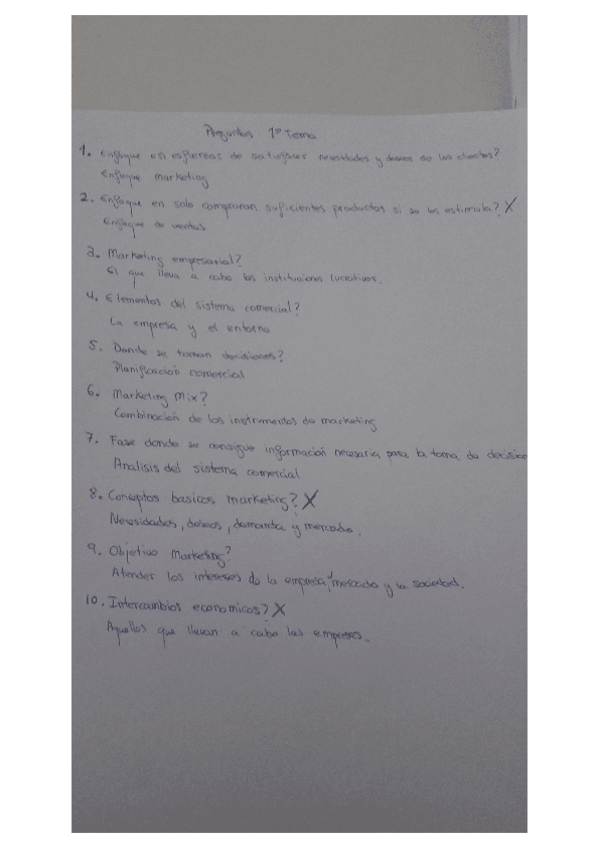 Preguntas 1º Tema
1. Enfoque en esfuerzos de satisfacer necesidades y deseos de los clientes?
Enfoque marketing
2. Enfoque en solo compraran suficientes productos si se les estimula? X
Enfoque de ventas
3. Marketing empresarial?
El que lleva a cabo las instituciones lucrativas.
4. Elementos del sistema comercial?
La empresa y el entorno
5. Donde se toman decisiones?
Planificación comercial
6. Marketing Mix?
Combinación de los instrumentos de marketing
7. Fase donde se consigue información necesaria para la toma de decision
Analisis del sistema comercial
8. Conceptos basicos marketing? X
Necesidades, deseos, demanda y mercado.
9. Objetivo Marketing?
Atender los intereses de la empresa, mercado y la sociedad.
10. Intercambios economicos? X
Aquellos que llevan a cabo las empresas.